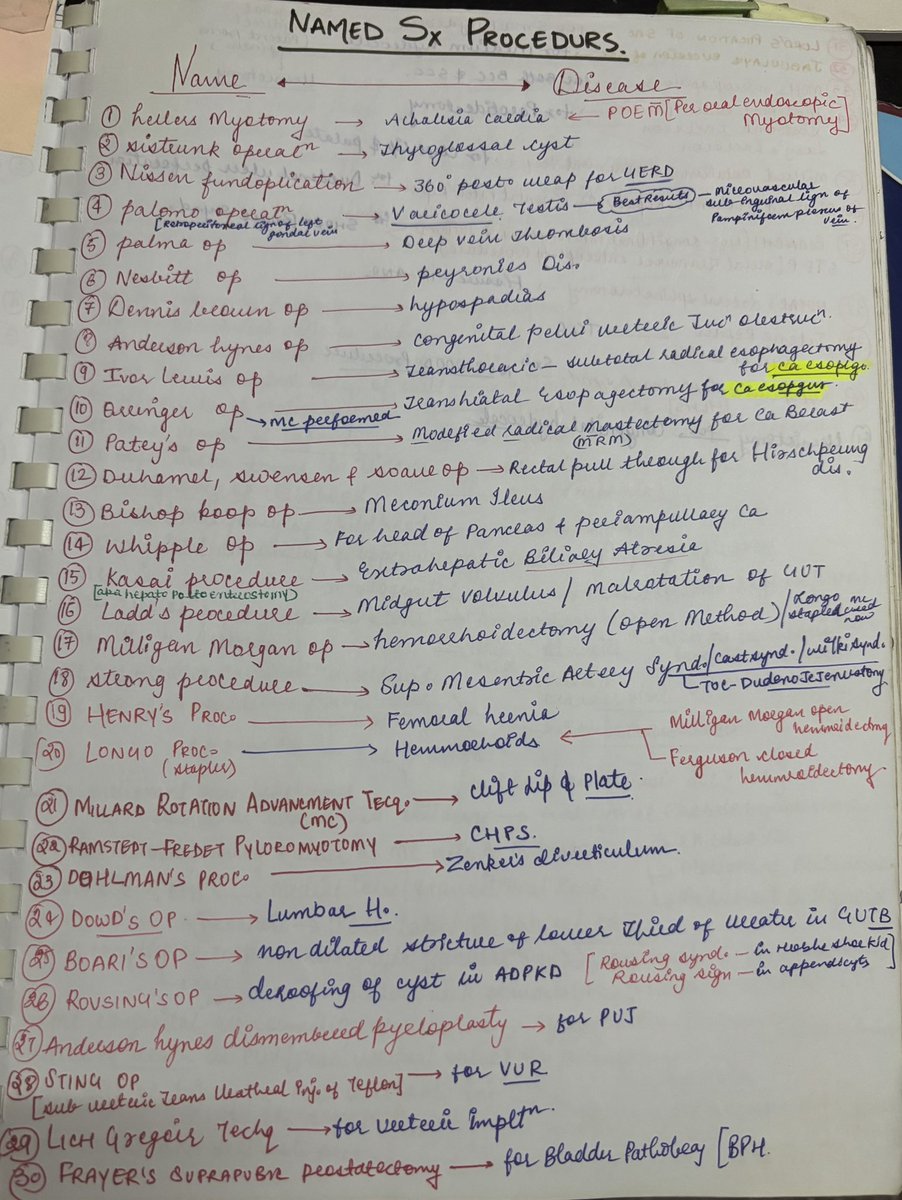 NAMED Sx PROCEDURS.
Name ⟷ Disease
① hellers Myotomy → Achalisia cardia ← POEM [Per oral endoscopic Myotomy]
② sistrunk operatⁿ → Thyroglossal cyst
③ Nissen fundoplication → 360° post° wrap for GERD
④ palomo operatⁿ → Varicocele Testis → Best Results – microvascular sub-inguinal lign of Pampiniform plexus of vein.
[Retroperitoneal lign of left gondal vein
⑤ palma op → Deep vein Thrombosis
⑥ Nesbitt op → peyronies Dis.
⑦ Dennis brown op → hypospadias
⑧ Anderson hynes op → congenital pelvi ureteric Juⁿ obstrucⁿ.
⑨ Ivor lewis op → Transthoracic – subtotal radical esophagectomy for ca esopgo.
⑩ Oringer op → Transhiatal Esopagectomy for ca esopgus.
→ mc perfoemed
⑪ Patey's op → Modefied radical mastectomy for ca Breast
(MRM)
⑫ Duhamel, swensen & soave op → Rectal pull through for Hirschprung dis.
⑬ Bishop koop op → Meconium Ileus
⑭ Whipple op → For head of Pancreas & periampullary Ca
⑮ Kasai procedure → Extrahepatic Biliary Atresia
[aka hepato porto enterostomy)
⑯ Ladd's procedure → Midgut volvulus / Malrotation of GUT
⑰ Milligan Morgan op → hemorrhoidectomy (open Method) / Longo mc stapled used now
⑱ strong procedure → Sup. Mesentric Artery Synd. / cast synd. / wilki synd.
TOC – Dudenojejenustomy
⑲ HENRY'S PROC. → Femoral hernia
⑳ LONGO PROC. → Hemmorhoids ← Milligan Morgan open hemmoidectmy
(stapler) Ferguson closed hemmroidectomy
㉑ MILLARD ROTATION ADVANCMENT TECQ. → clift lip & Plate.
(MC)
22 RAMSTEDT-FREDET PYLOROMYOTOMY → CHPS.
23 DOHLMAN'S PROC. → Zenker's diverticulum.
24 DOWD'S OP → Lumbar H.
25 BOARI'S OP → non dilated stricture of lower third of ureter in GUTB
26 ROVSING'S OP → deroofing of cyst in ADPKD [Rovsing synd. – in horshe shoe kid]
Rovsing sign – in appendicyts
27 Anderson hynes dismembered pyeloplasty → for PUJ
28 STING OP → for VUR
[sub ureteric Trans Urethral Inj. of Teflon]
29 LICH Gregoir Techq → for ureteric impltⁿ.
30 FRAYER'S SUPRAPUBIC prostatectomy → for Bladder Pathology [BPH.